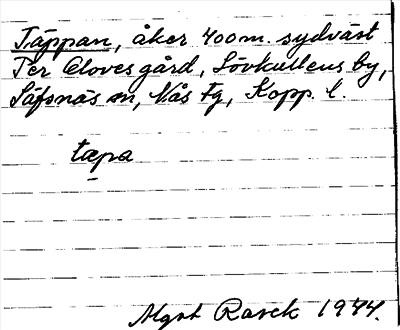 Täppan, åker 400 m. sydväst
Per Oloves gård, Lövkullens by,
Säfsnäs sn, Nås Fg, Kopp. l.
tæpa
Mgnt Rarck 1944.